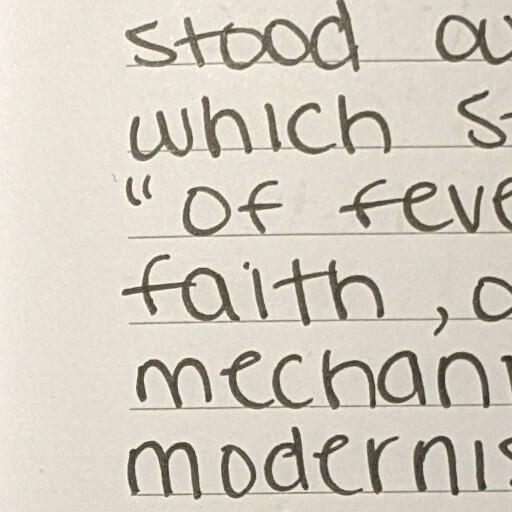 stood ou
which s
“of feve
faith, a
mechani
modernis